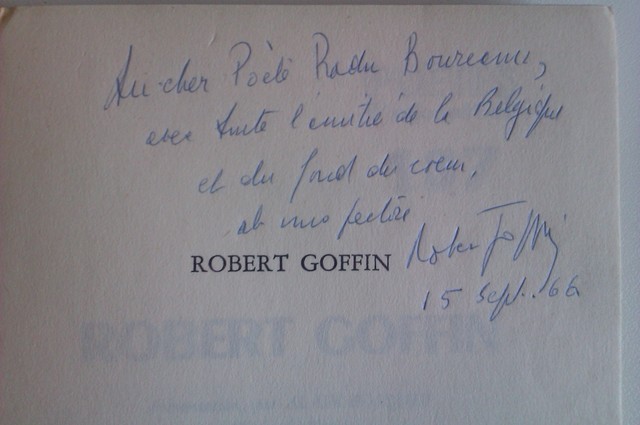 Au cher Poète Radu Boureanu,
avec toute l'amitié de la Belgique
et du fond du coeur,
ab imo pectore
Robert Goffin
ROBERT GOFFIN
15 Sept. 66
ROBERT GOFFIN